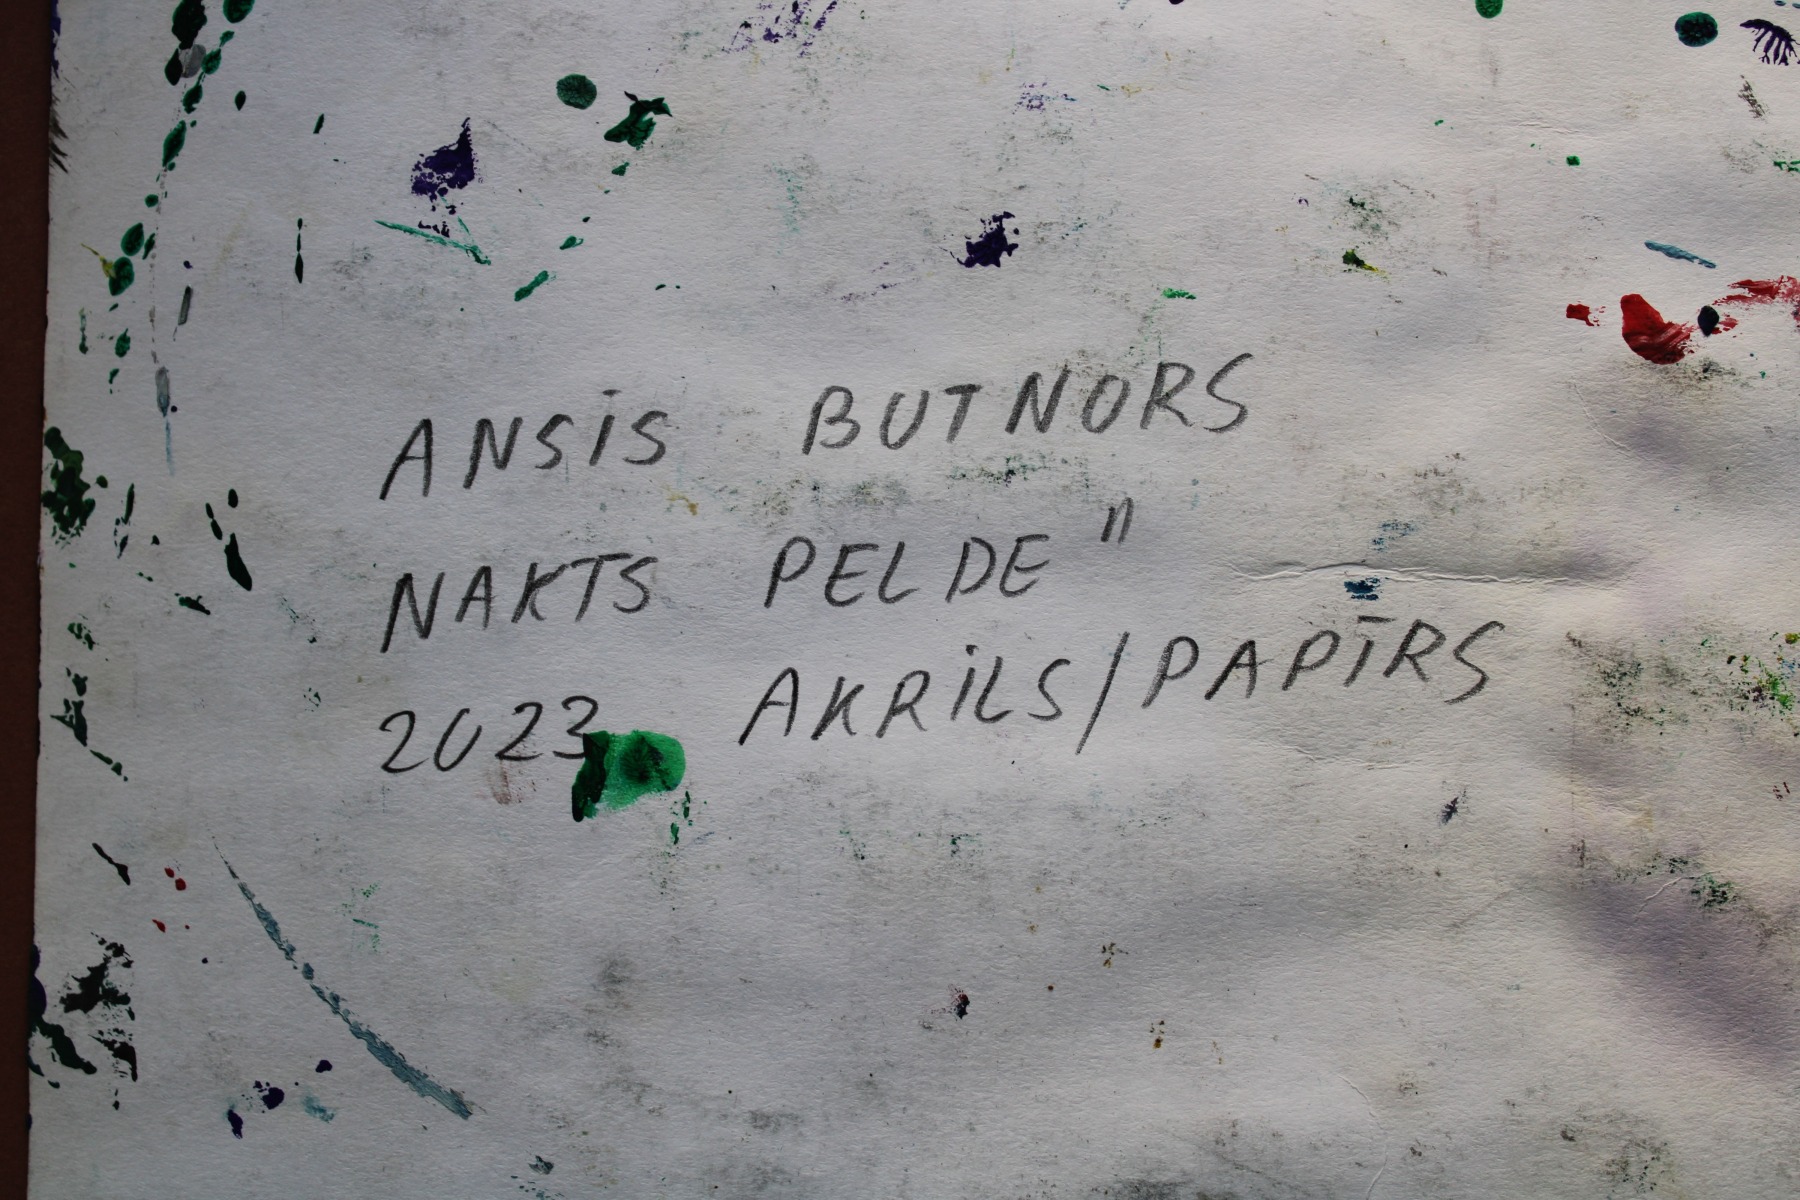 ANSiS BUTNORS
NAKTS PELDE"
2023 AKRiLS/PAPĪRS